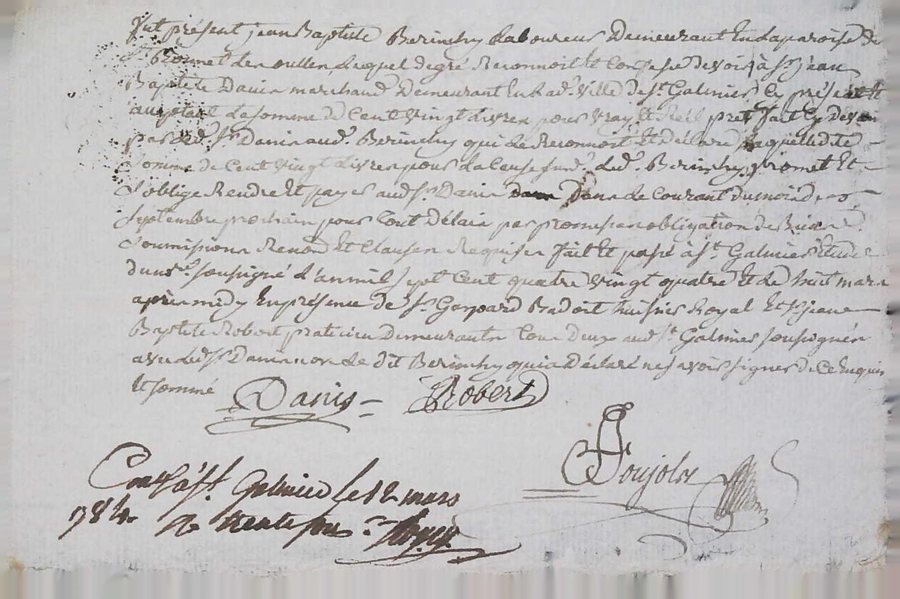 fut présent jean Baptiste Berinchy Laboureur Demeurant En la paroisse de
St Romet Les oullez Lequel de gré Reconnoit Et Confesse devoir à Sr jean
Baptiste Danis marchand Demeurant En lad. ville de St Galmier Cy présent Et
acceptant La somme de Cent vingt Livres pour vray Et Reel pret fait Cy devan
par led. Sr Danis aud. Berinchy qui Le Reconnoit Et déclare Laquelle dite
Somme de Cent vingt Livres pour La Cause led. Berinchy promet Et
S'oblige Rendre Et payer aud. Sr Danis Dans de Courant du mois de
Septembre prochain pour tout Délair par promesse obligation de Biens
Soumissions Renond. Et Clauses Requises fait Et passé à St Galmier Etude
du no.re soussigné L'an mil Sept Cent quatre vingt quatre Et Le huit mars
après midy En présence de Sr Gaspard Badoit huissier Royal Et Sr jean
Baptiste Robert praticien Demeurants tous Deux aud. St Galmier soussignés
avec led. Sr Danis non Le dit Berinchy qui a Déclaré ne savoir signer de Ce Enquis
Et sommé
Danis Robert
Poujols
Contr à St Galmier le 12 mars
1784. R trente